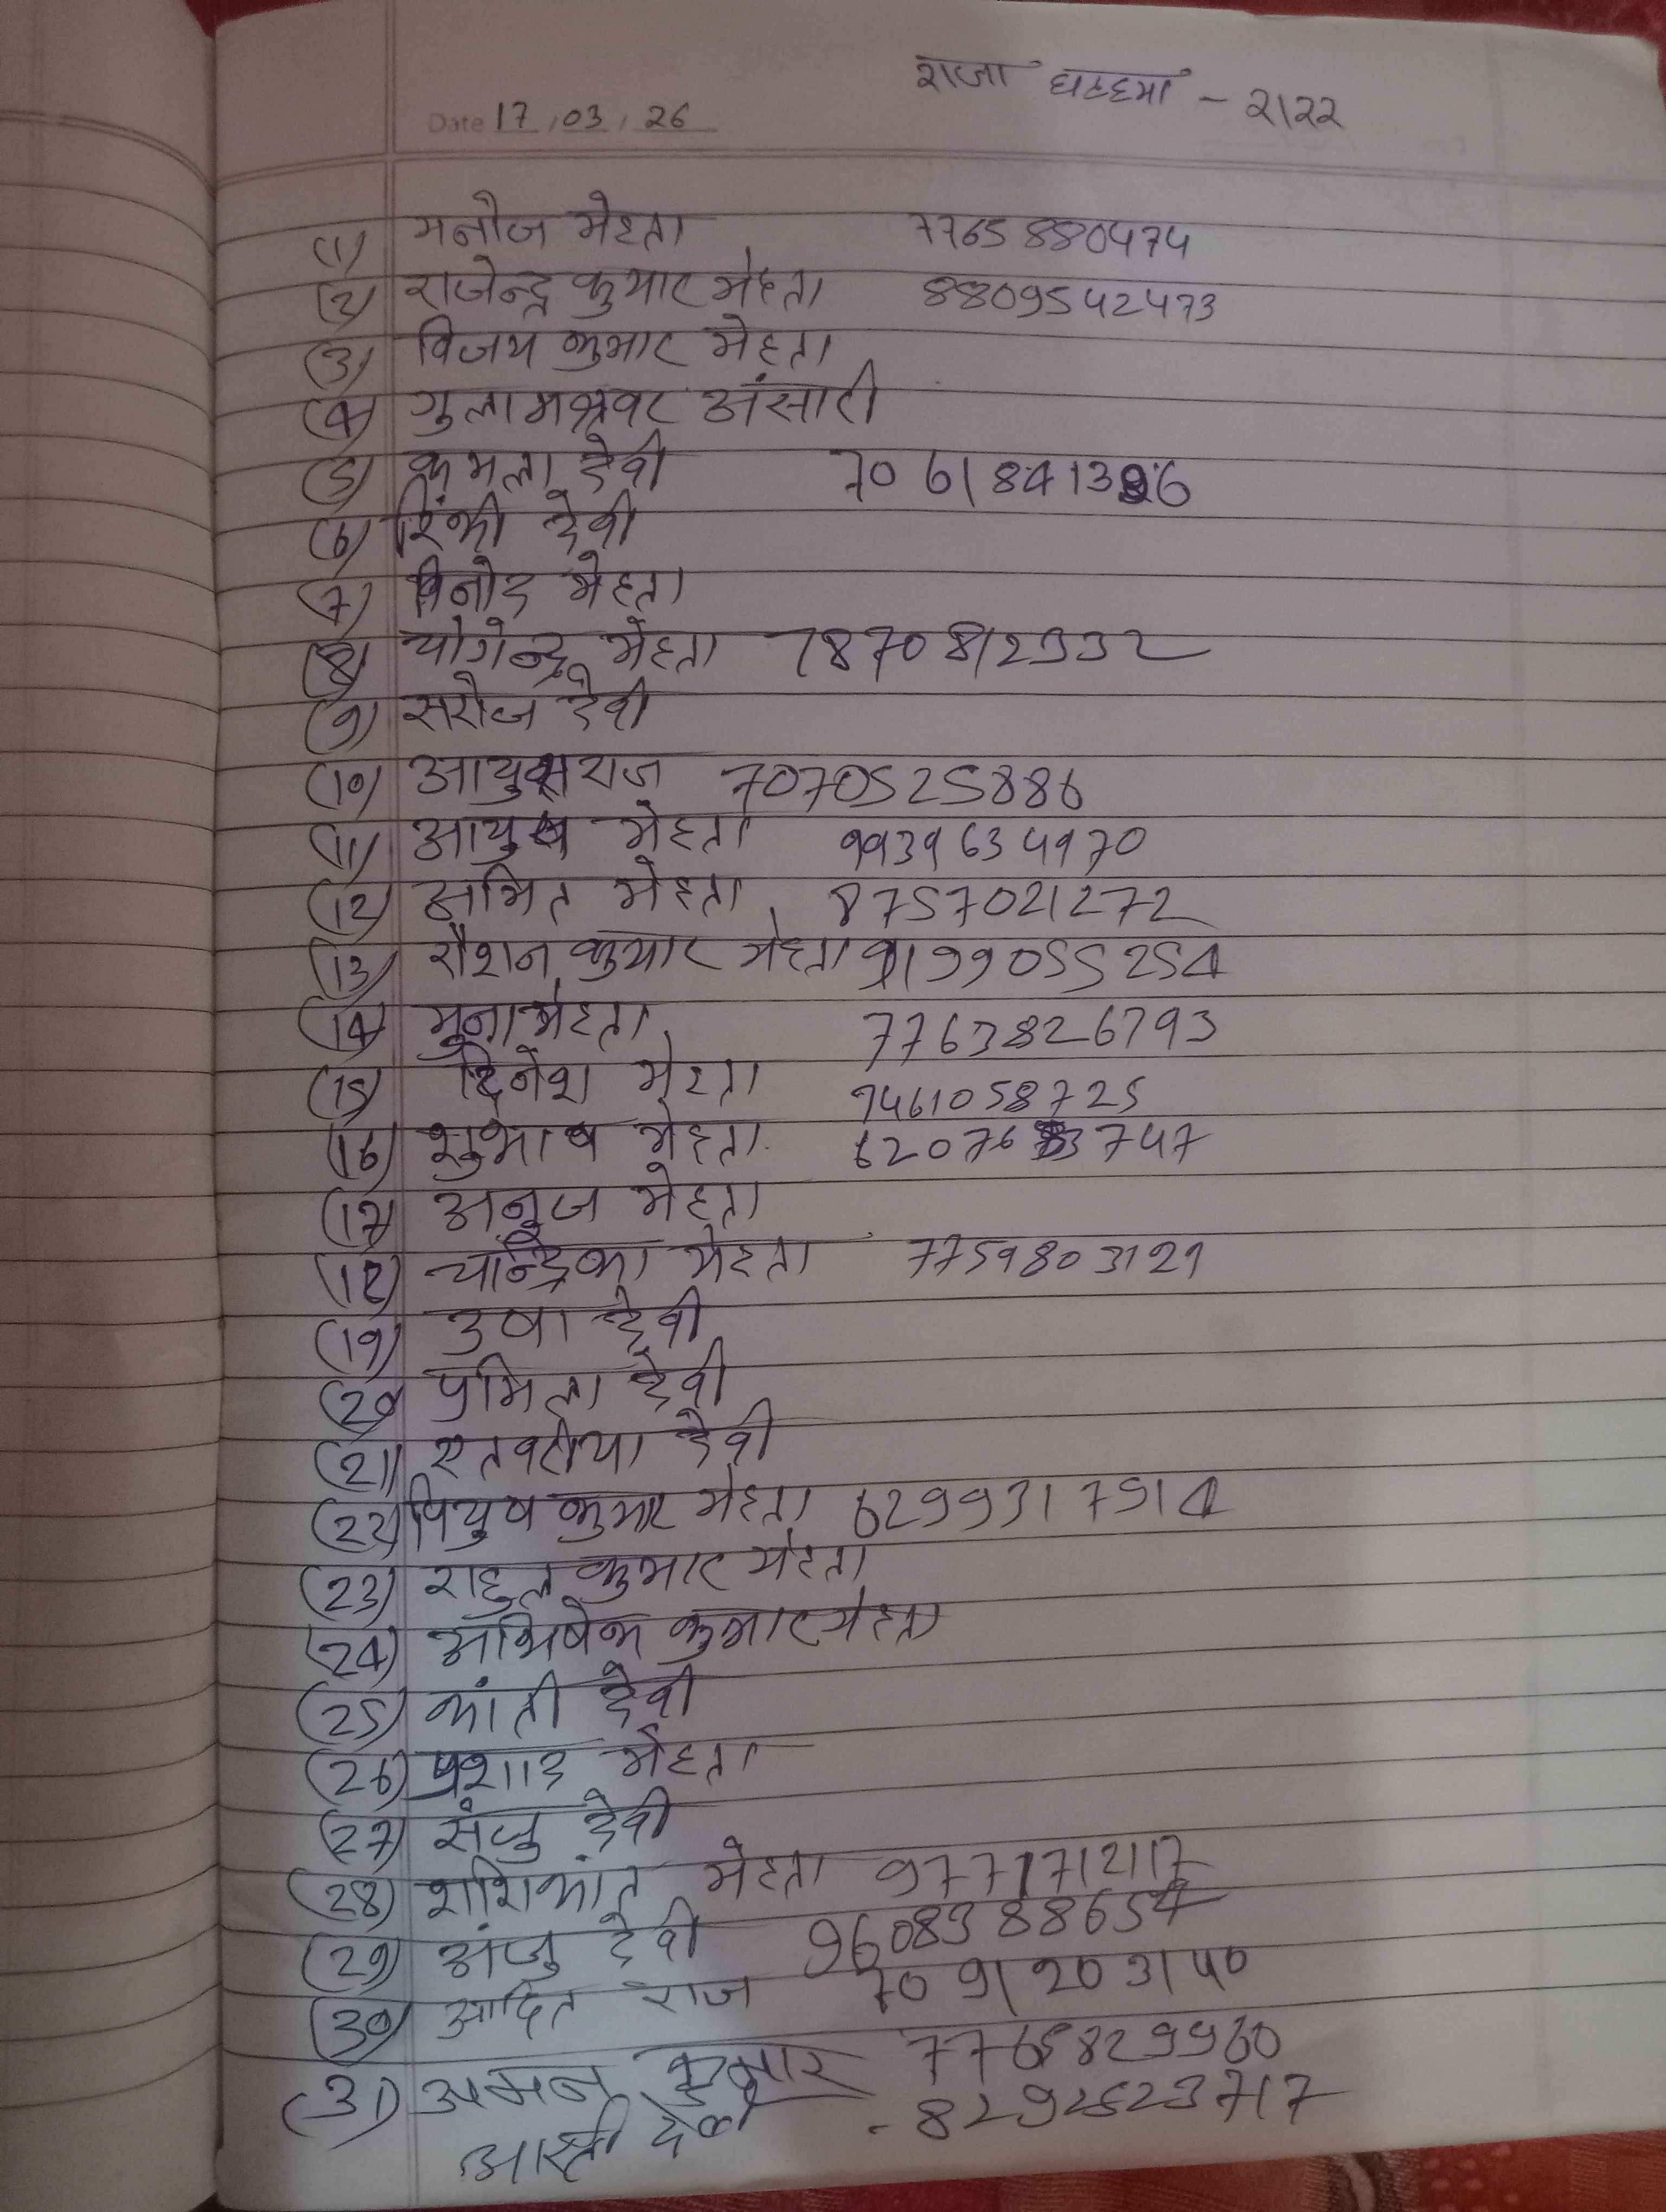 राजा घटहमां - २।२२
Date 17/03/26
(1) मनोज मेहता 7765880474
(2) राजेन्द्र कुमार मेहता 8809542473
(3) विजय कुमार मेहता
(4) गुलाम अंसारी
(5) कमला देवी 7061841396
(6) रिंकी देवी
(7) विनोद मेहता
(8) योगेन्द्र मेहता 7870812332
(9) सरोज देवी
(10) आयुष राज 7070525886
(11) आयुष मेहता 9939634970
(12) अमित मेहता 8757021272
(13) रौशन कुमार मेहता 9199055254
(14) मुना मेहता 7763826793
(15) दिनेश मेहता 9461058725
(16) सुभाष मेहता
(17) अनुज मेहता
(18) चन्द्रिका मेहता 7759803129
(19) उषा देवी
(20) प्रमिला देवी
(21) एतवरीया देवी
(22) पियुष कुमार मेहता 6299317914
(23) राहुल कुमार मेहता
(24) अभिषेक कुमार मेहता
(25) कांती देवी
(26) प्रशाद मेहता
(27) संजु देवी
(28) शशिकांत मेहता 9771712117
(29) अंजु देवी 9608388654
(30) आदित राज 7091203140
(31) अमन कुमार 7765829960
देवी - 8292523717